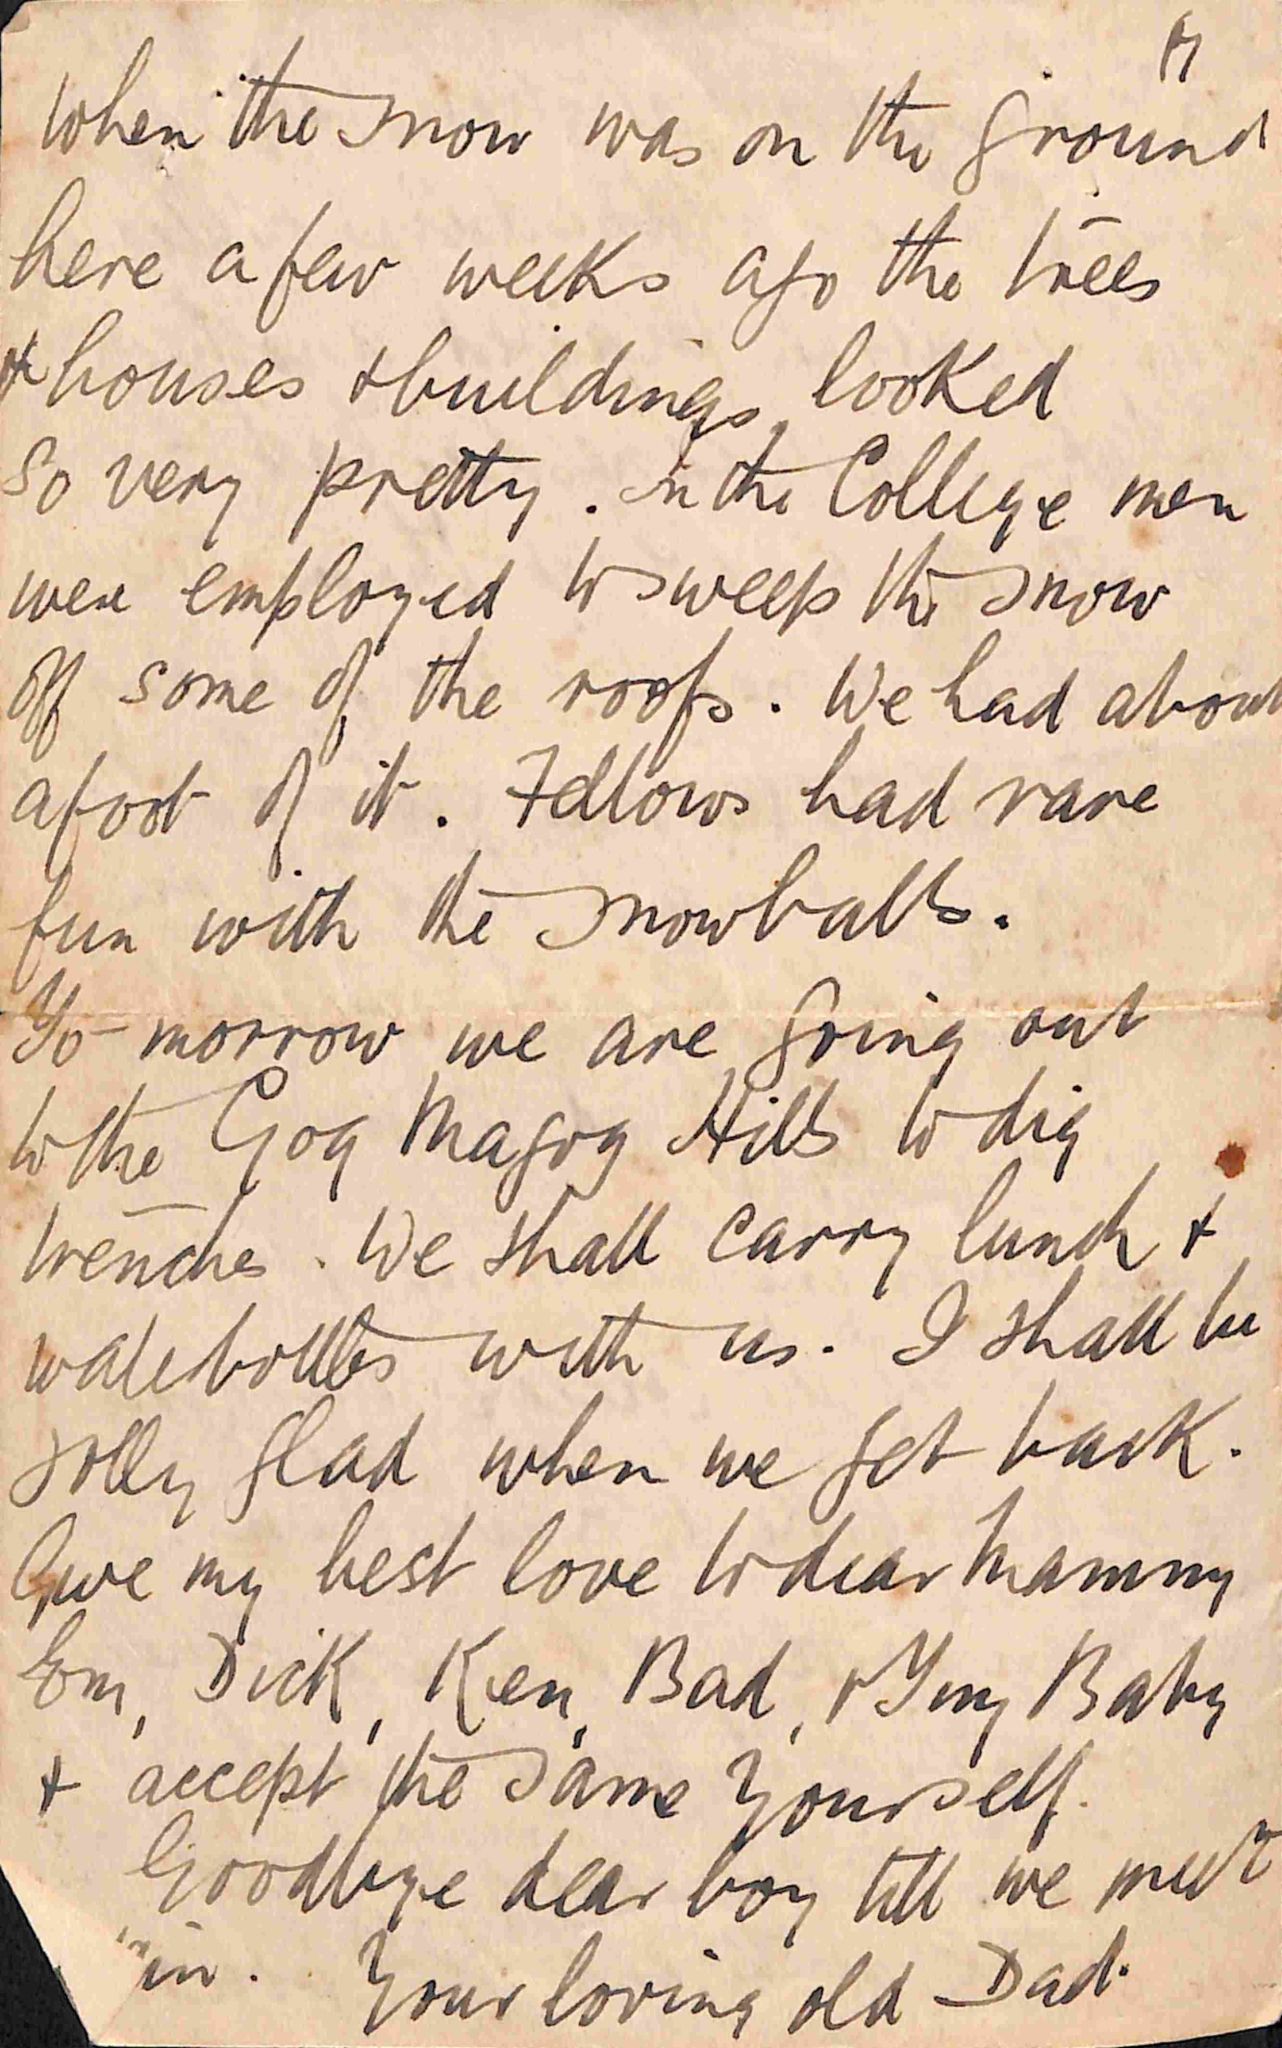 When the snow was on the ground
here a few weeks ago the trees
& houses & buildings looked
so very pretty. In the College men
were employed to sweep the snow
off some of the roofs. We had about
a foot of it. Fellows had rare
fun with the snowballs.
To-morrow we are going out
to the Gog Magog Hills to dig
trenches. We shall carry lunch &
waterbottles with us. I shall be
jolly glad when we get back.
Give my best love to dear Mammy
Dick, Ken, Bad, & my Baby
& accept the same yourself.
Goodbye dear boy till we meet
in. Your loving old Dad.